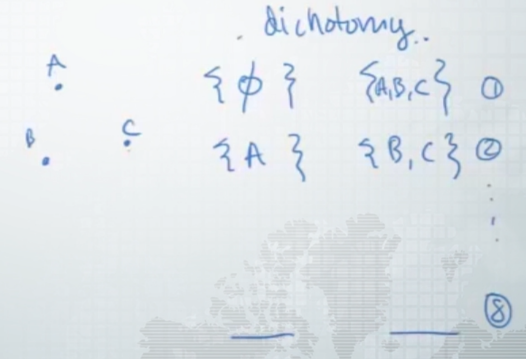 . dichotomy..
A
{ϕ} {A,B,C} ①
B C
{A} {B,C} ②
⑧